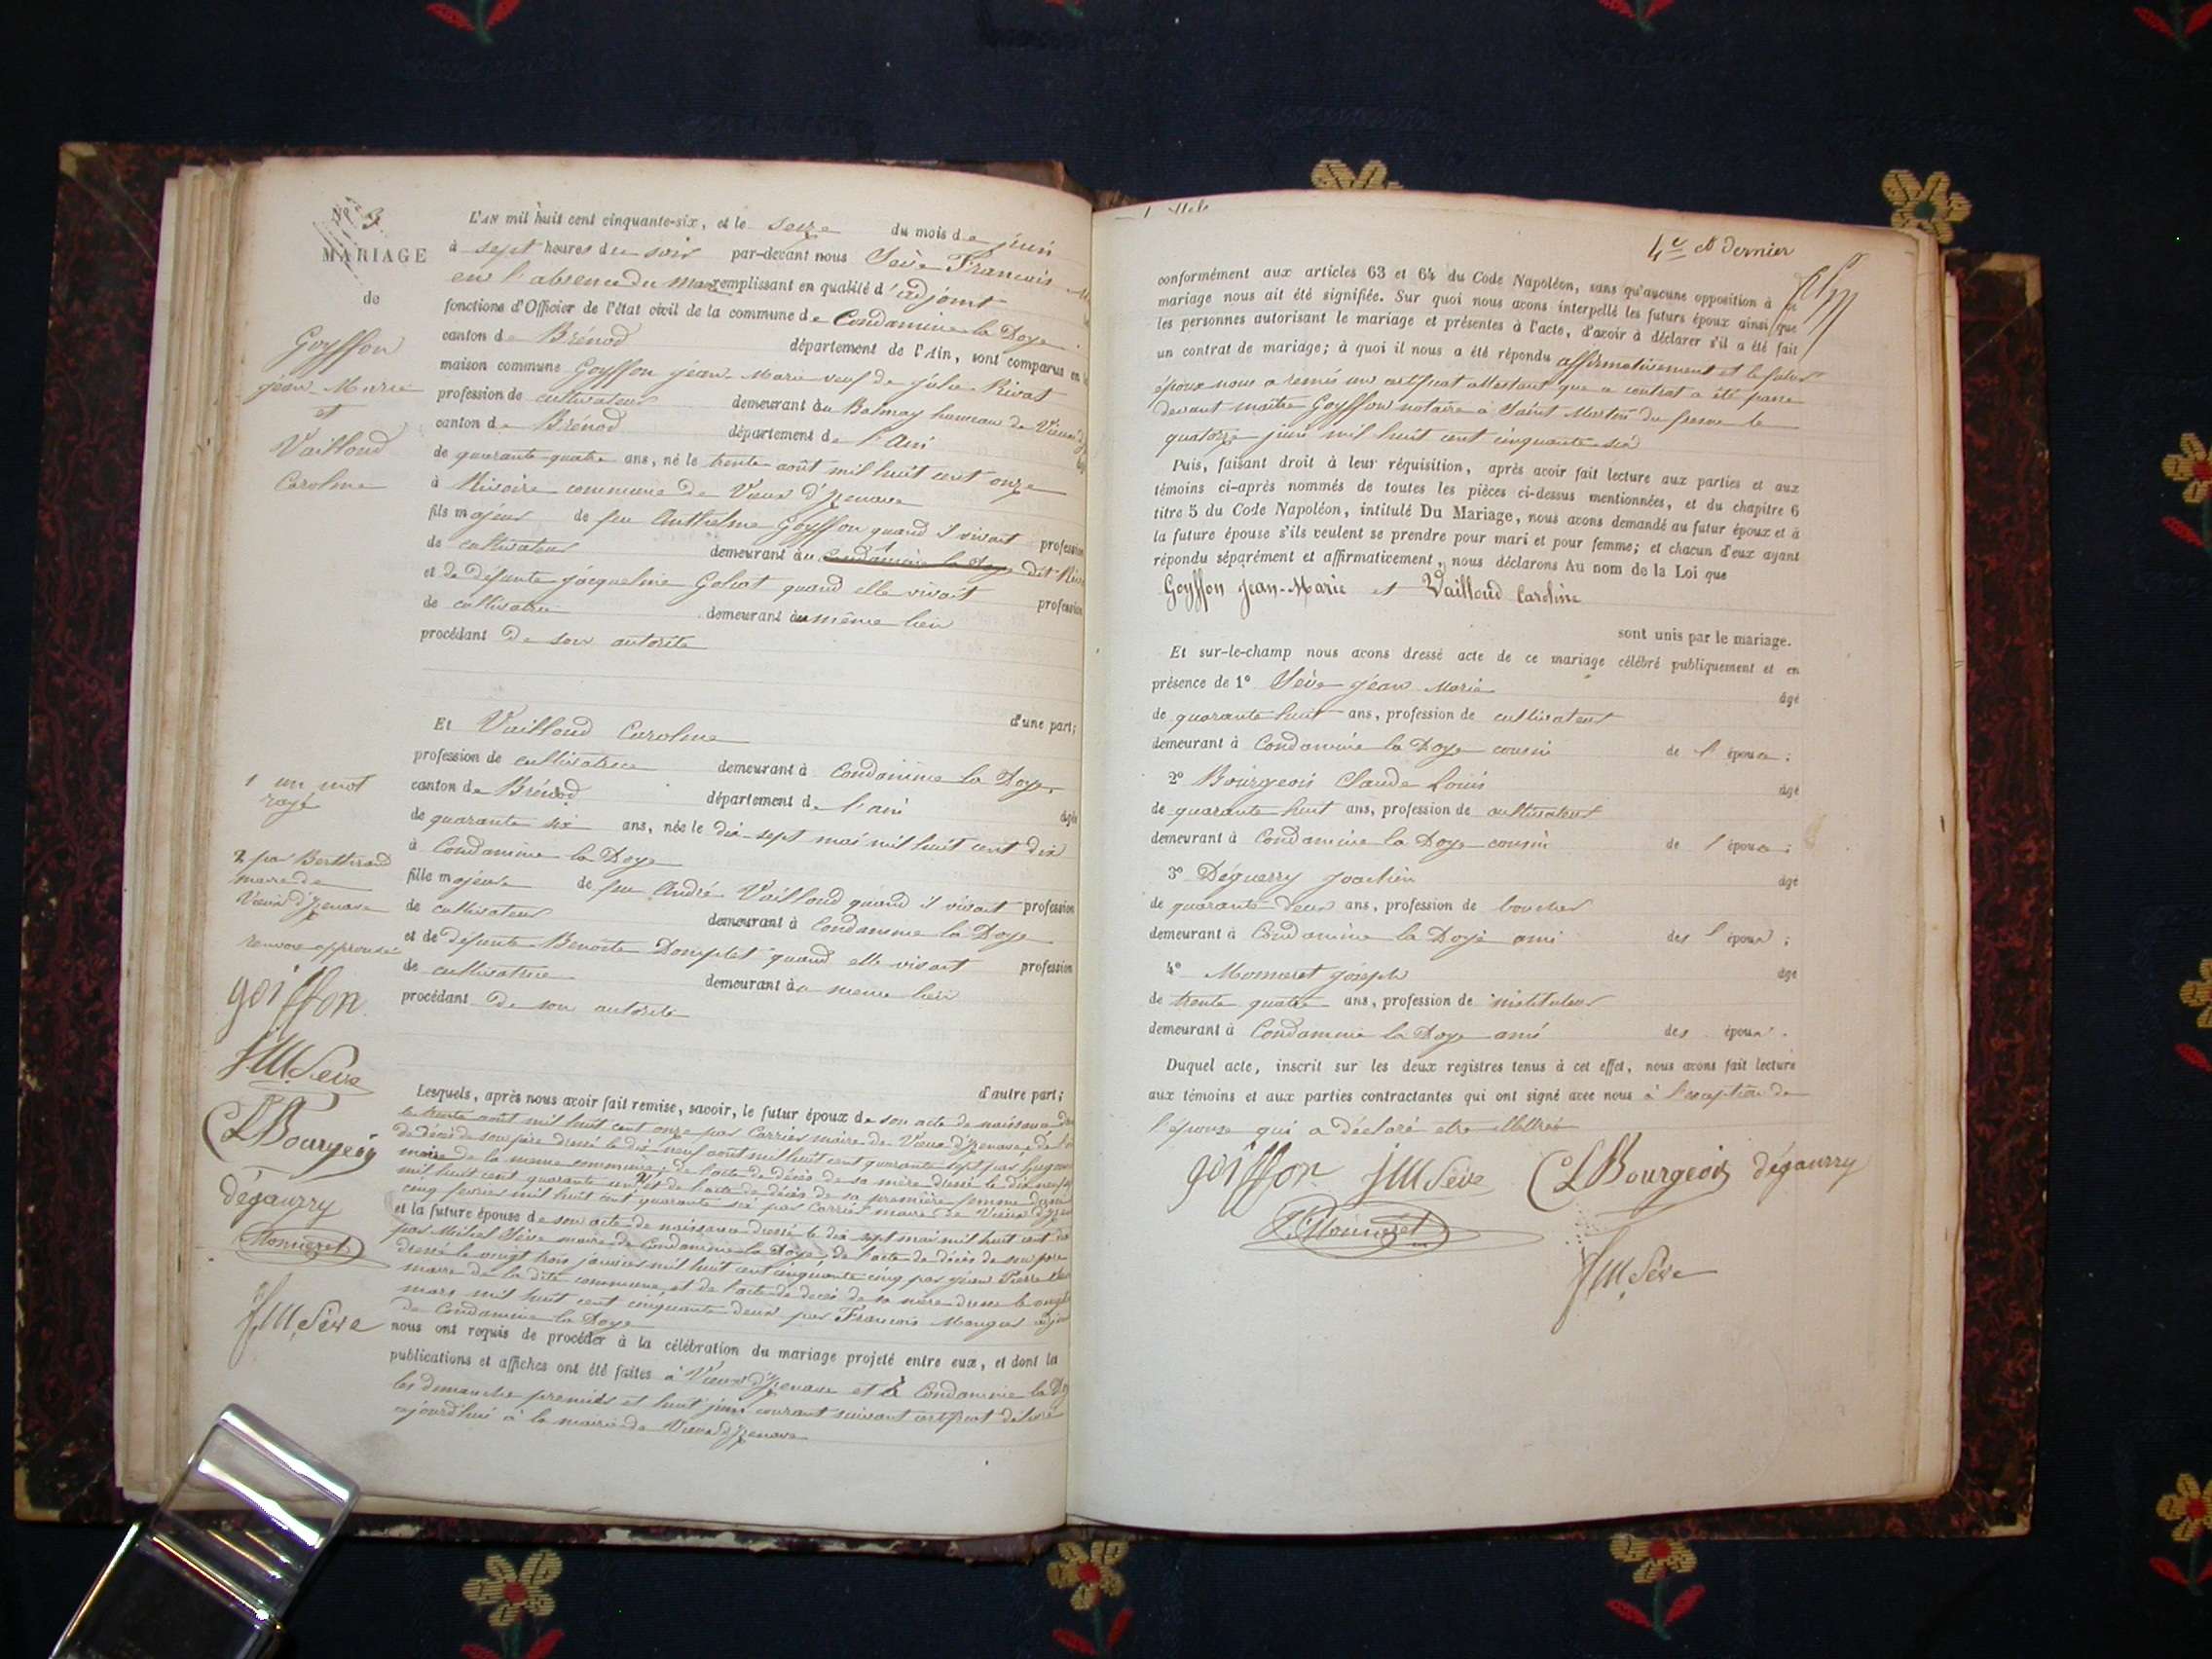 N° 3
MARIAGE
de
Goyffon
jean-Marie
et
Vailloud
Caroline
L'AN mil huit cent cinquante-six, et le seize du mois de juin
à sept heures du soir par-devant nous Sève François
en l'absence du Maire remplissant en qualité d'adjoint
fonctions d'Officier de l'état civil de la commune de Condamine la Doye
canton de Brénod département de l'Ain, sont comparus en
maison commune Goyffon jean-Marie veuf de julie Rivat
profession de cultivateur demeurant au Balmay hameau de Vieux d'
canton de Brénod département de l'Ain
de quarante quatre ans, né le trente août mil huit cent onze
à Rivoire commune de Vieux d'Izenave
fils majeur de feu Anthelme Goyffon quand il vivait profession
de cultivateur demeurant au Condamine la Doye dit
et de défunte jacqueline Goliat quand elle vivait profession
de cultivatrice demeurant au même lieu
procédant de son autorité
d'une part;
Et Vailloud Caroline
profession de cultivatrice demeurant à Condamine la Doye
canton de Brénod département de l'ain âgée
de quarante six ans, née le dix-sept mai mil huit cent dix
à Condamine la Doye
fille majeure de feu André Vailloud quand il vivait profession
de cultivateur demeurant à Condamine la Doye
et de défunte Benoite Domplet quand elle vivait profession
de cultivatrice demeurant au même lieu
procédant de son autorité
d'autre part;
Lesquels, après nous avoir fait remise, savoir, le futur époux de son acte de naissance
le trente août mil huit cent onze par Carrier maire de Vieux d'Izenave, de
de décès de son père dressé le dix neuf août mil huit cent quarante sept par
maire de la même commune, de l'acte de décès de sa mère dressé le dix neuf
mil huit cent quarante un 2 et de l'acte de décès de sa première femme dressé
cinq fevrier mil huit cent quarante six par Carrier maire de Vieux d'Izenave
et la future épouse de son acte de naissance dressé le dix sept mai mil huit cent dix
par Michel Sève maire de Condamine la Doye, de l'acte de décès de son père
dressé le vingt trois janvier mil huit cent cinquante cinq par jean Pierre
maire de la dite commune, et de l'acte de décès de sa mère dressé le
mars mil huit cent cinquante deux par François Mangas
de Condamine la Doye
nous ont requis de procéder à la célébration du mariage projeté entre eux, et dont la
publications et affiches ont été faites à Vieux d'Izenave et à Condamine la
les dimanche premier et huit juin courant suivant certificat délivré
aujourd'hui à la mairie de Vieux d'Izenave
1 un mot
rayé
2 par Berthirand
maire de
Vieux d'Izenave
renvoi approuvé
goiffon
JM Seve
CL Bourgeois
dégaurry
Monneret
JM Sève
4e et dernier
conformément aux articles 63 et 64 du Code Napoléon, sans qu'aucune opposition à ce
mariage nous ait été signifiée. Sur quoi nous avons interpellé les futurs époux ainsi que
les personnes autorisant le mariage et présentes à l'acte, d'avoir à déclarer s'il a été fait
un contrat de mariage; à quoi il nous a été répondu affirmativement et le futur
époux nous a remis un certificat attestant que ce contrat a été passé
devant maître Goyffon notaire à Saint Martin du fresne le
quatorze juin mil huit cent cinquante six
Puis, faisant droit à leur réquisition, après avoir fait lecture aux parties et aux
témoins ci-après nommés de toutes les pièces ci-dessus mentionnées, et du chapitre 6
titre 5 du Code Napoléon, intitulé Du Mariage, nous avons demandé au futur époux et à
la future épouse s'ils veulent se prendre pour mari et pour femme; et chacun d'eux ayant
répondu séparément et affirmativement, nous déclarons Au nom de la Loi que
Goyffon Jean-Marie et Vailloud Caroline
sont unis par le mariage.
Et sur-le-champ nous avons dressé acte de ce mariage célébré publiquement et en
présence de 1° Sève jean Marie âgé
de quarante huit ans, profession de cultivateur
demeurant à Condamine la Doye cousin de l'épouse;
2° Bourgeois Claude Louis âgé
de quarante huit ans, profession de cultivateur
demeurant à Condamine la Doye cousin de l'épouse;
3° Déguerry joachim âgé
de quarante deux ans, profession de boucher
demeurant à Condamine la Doye ami des époux;
4° Monneret joseph âgé
de trente quatre ans, profession de instituteur
demeurant à Condamine la Doye ami des époux.
Duquel acte, inscrit sur les deux registres tenus à cet effet, nous avons fait lecture
aux témoins et aux parties contractantes qui ont signé avec nous à l'exception de
l'épouse qui a déclaré etre illettrée
goiffon JM Sève CL Bourgeois dégaurry
J. Monneret
JM Sève